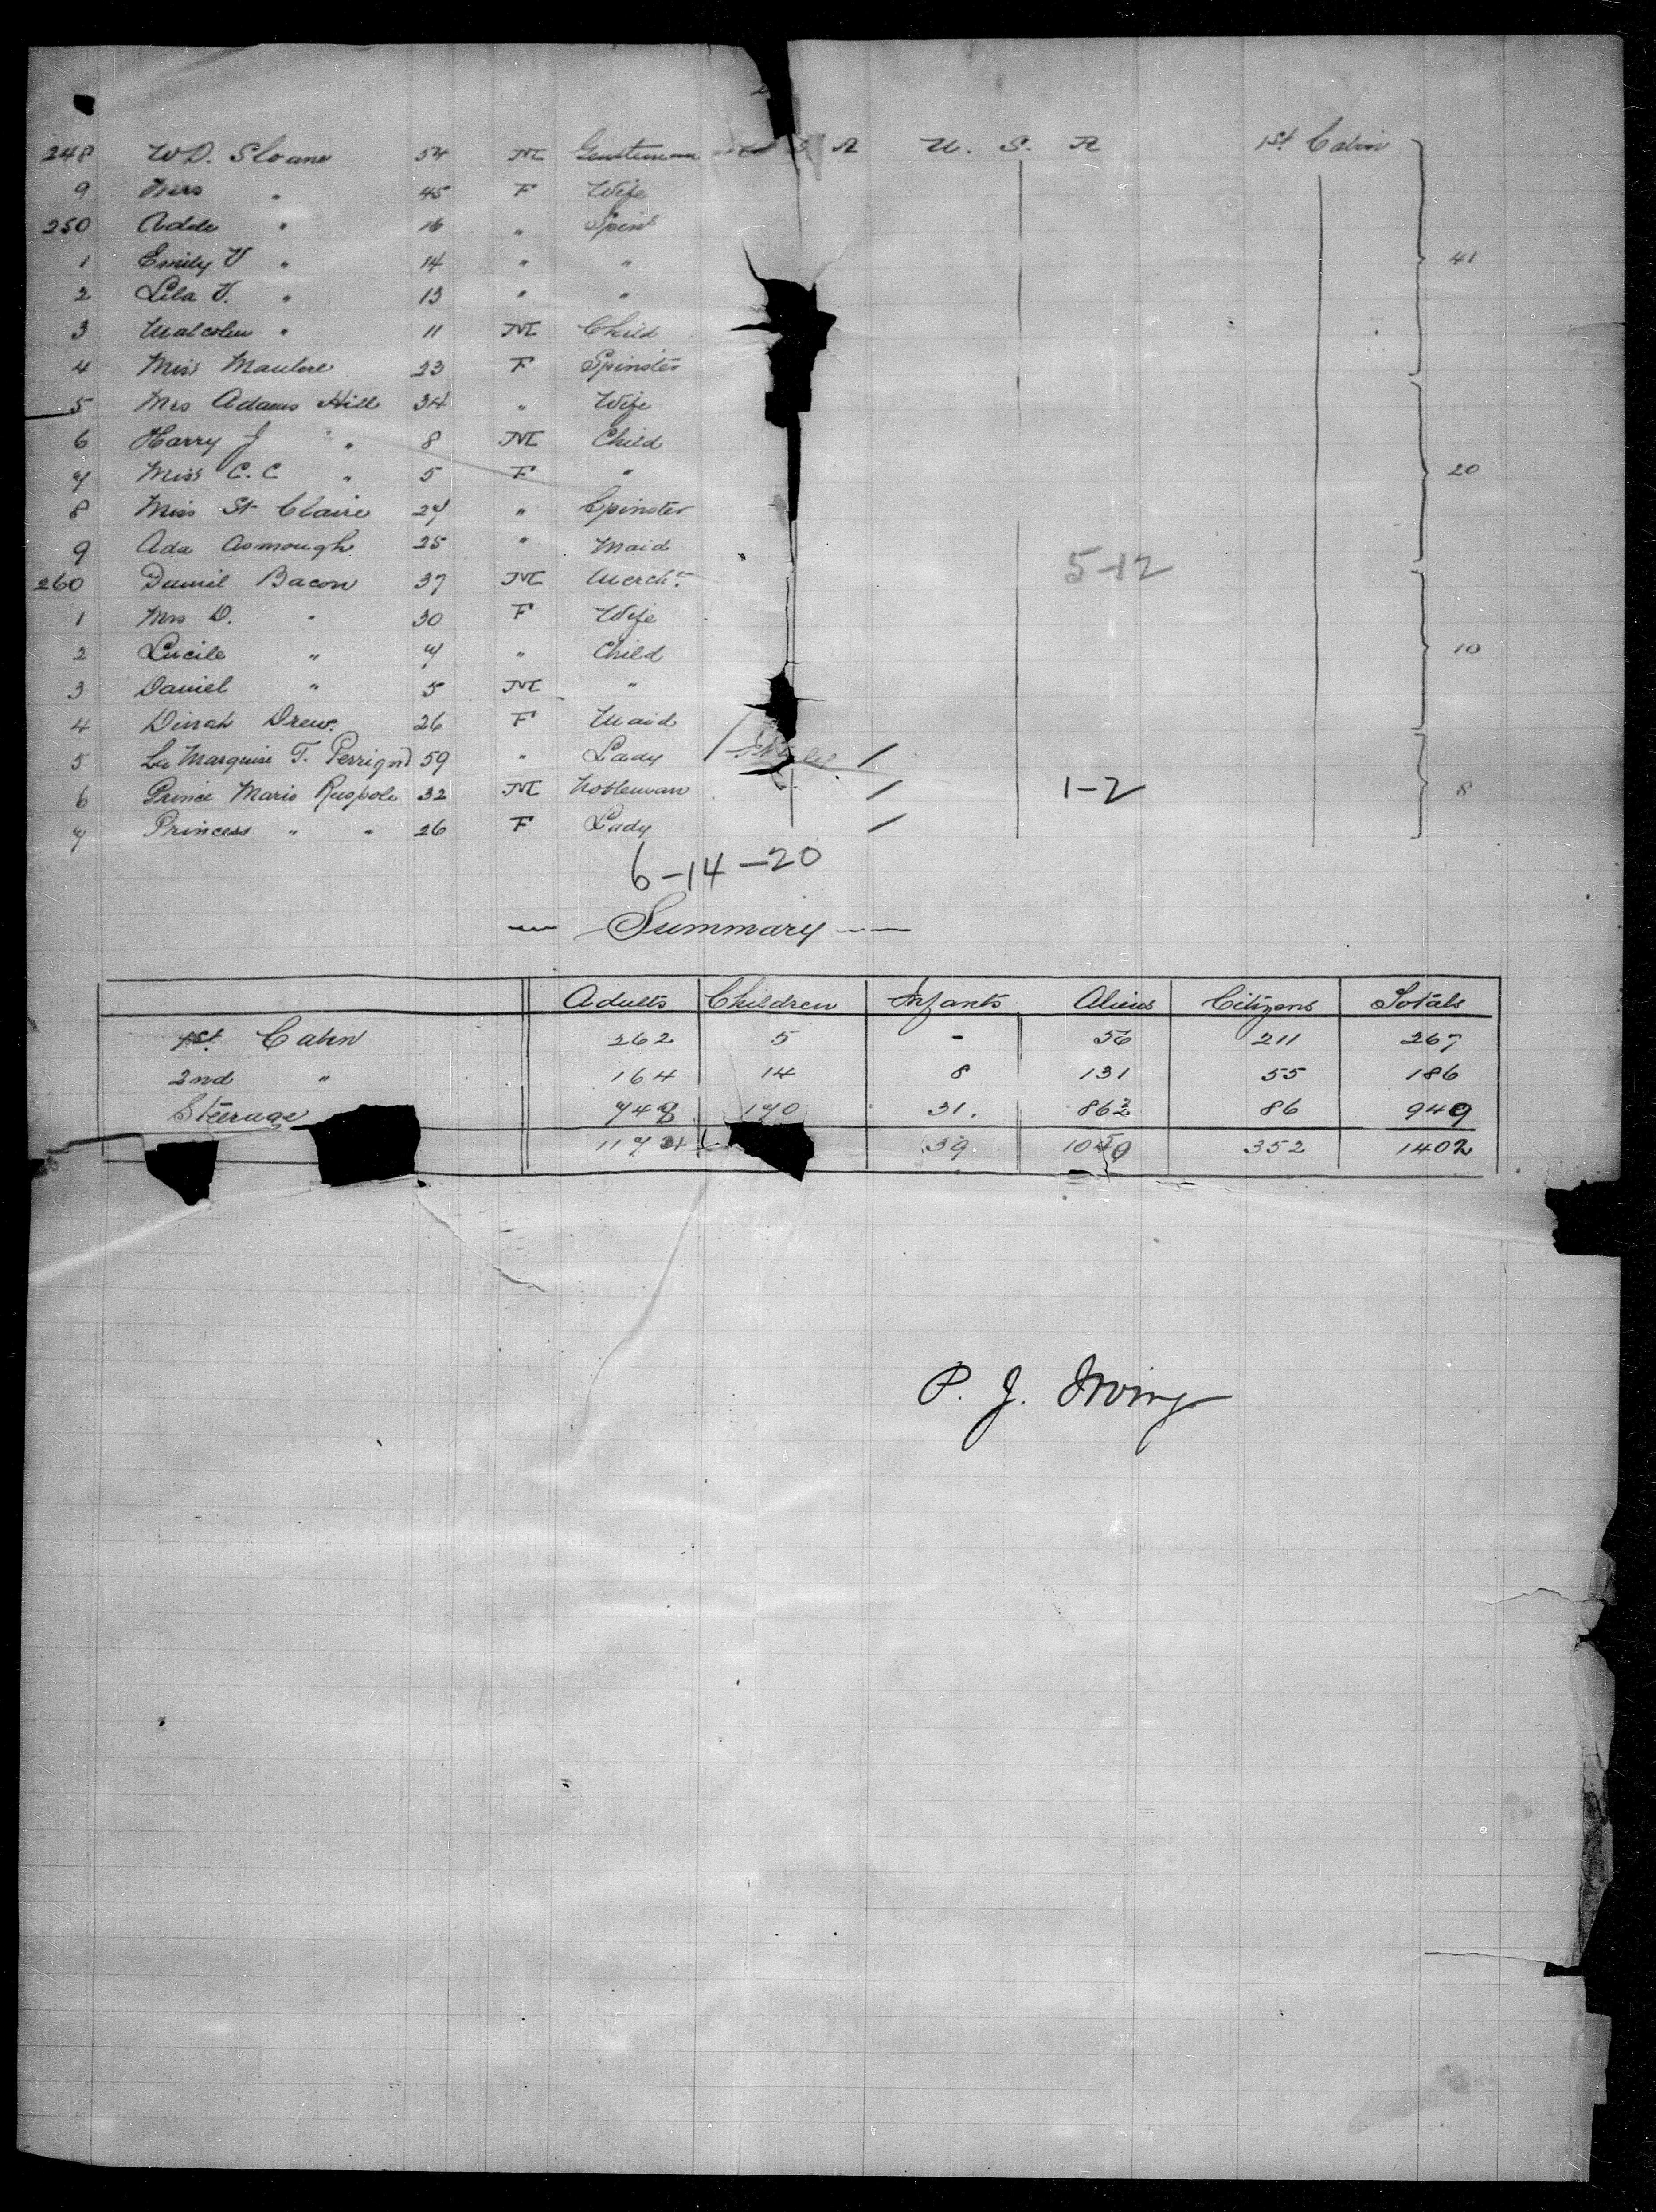 248 W D. Sloane 54 M Gentleman S A U. S. A 1st Cabin
9 Mrs " 45 F Wife
250 Adele " 16 " Spins
1 Emily V " 14 " "
2 Lila V. " 13 " " 41
3 Malcolm " 11 M Child
4 Miss 23 F Spinster
5 Mrs Adams Hill 34 " Wife
6 Harry J " 8 M Child
7 Miss C. C " 5 F " 20
8 Miss St Claire 27 " Spinster
9 Ada Asmough 25 " Maid 5-12
260 Daniel Bacon 37 M Mercht
1 Mrs D. " 30 F Wife
2 Lucile " 7 " Child 10
3 Daniel " 5 M "
4 Dinah Drew. 26 F Maid
5 La Marquise T. 59 " Lady /
6 Prince Mario Ruspole 32 M Nobleman / 1-2 8
7 Princess " " 26 F Lady /
6-14-20
Summary
Adults Children Infants Aliens Citizens Totals
1st Cabin 262 5 - 56 211 267
2nd " 164 14 8 131 55 186
Steerage 748 170 31. 863 86 949
1174 39 1050 352 1402
P. J. Irving